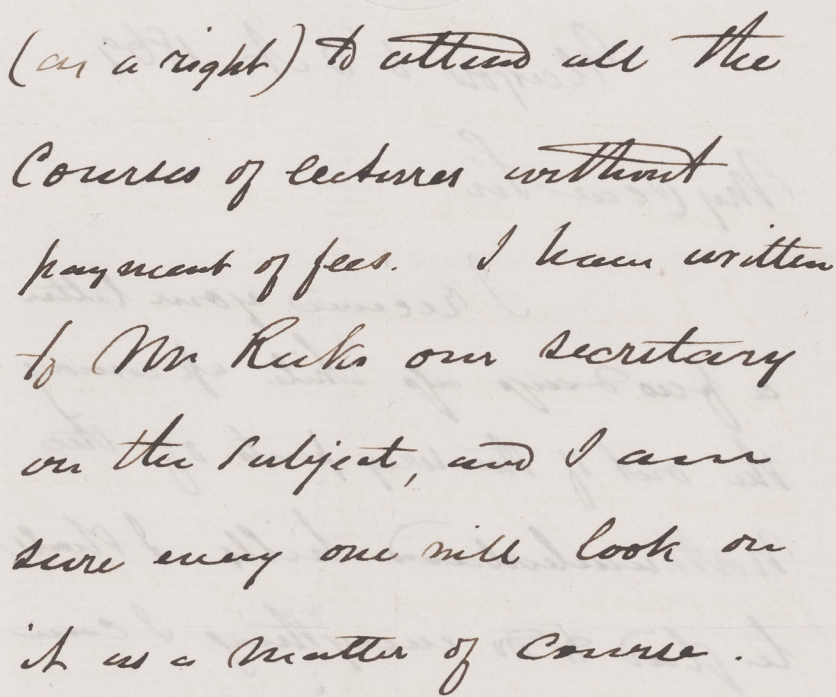 (as a right) to attend all the
Courses of lectures without
payment of fees. I have written
to Mr Reeks our secretary
on the subject, and I am
sure every one will look on
it as a matter of course.